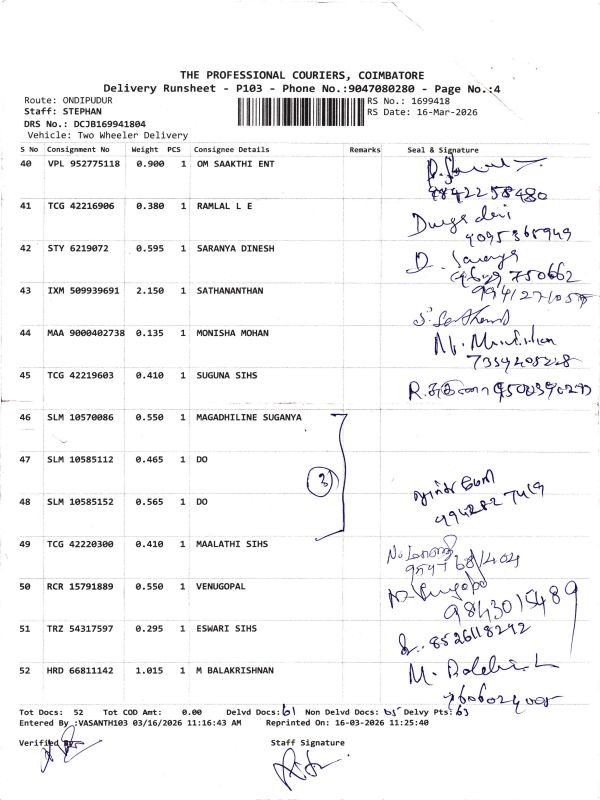 THE PROFESSIONAL COURIERS, COIMBATORE
Delivery Runsheet - P103 - Phone No.:9047080280 - Page No.:4
Route: ONDIPUDUR RS No.: 1699418
Staff: STEPHAN RS Date: 16-Mar-2026
DRS No.: DCJB169941804
Vehicle: Two Wheeler Delivery
S No Consignment No Weight PCS Consignee Details Remarks Seal & Signature
40 VPL 952775118 0.900 1 OM SAAKTHI ENT
9842258480
41 TCG 42216906 0.380 1 RAMLAL L E
Durga devi
42 STY 6219072 0.595 1 SARANYA DINESH
D. Saranya
43 IXM 509939691 2.150 1 SATHANANTHAN
44 MAA 9000402738 0.135 1 MONISHA MOHAN
45 TCG 42219603 0.410 1 SUGUNA SIHS
R. சுகுணா
46 SLM 10570086 0.550 1 MAGADHILINE SUGANYA
47 SLM 10585112 0.465 1 DO
3
48 SLM 10585152 0.565 1 DO
9942827419
49 TCG 42220300 0.410 1 MAALATHI SIHS
50 RCR 15791889 0.550 1 VENUGOPAL
9843015489
51 TRZ 54317597 0.295 1 ESWARI SIHS
8526118242
52 HRD 66811142 1.015 1 M BALAKRISHNAN
Tot Docs: 52 Tot COD Amt: 0.00 Delvd Docs: Non Delvd Docs: Delvy Pts:
Entered By :VASANTH103 03/16/2026 11:16:43 AM Reprinted On: 16-03-2026 11:25:40
Verified By: Staff Signature